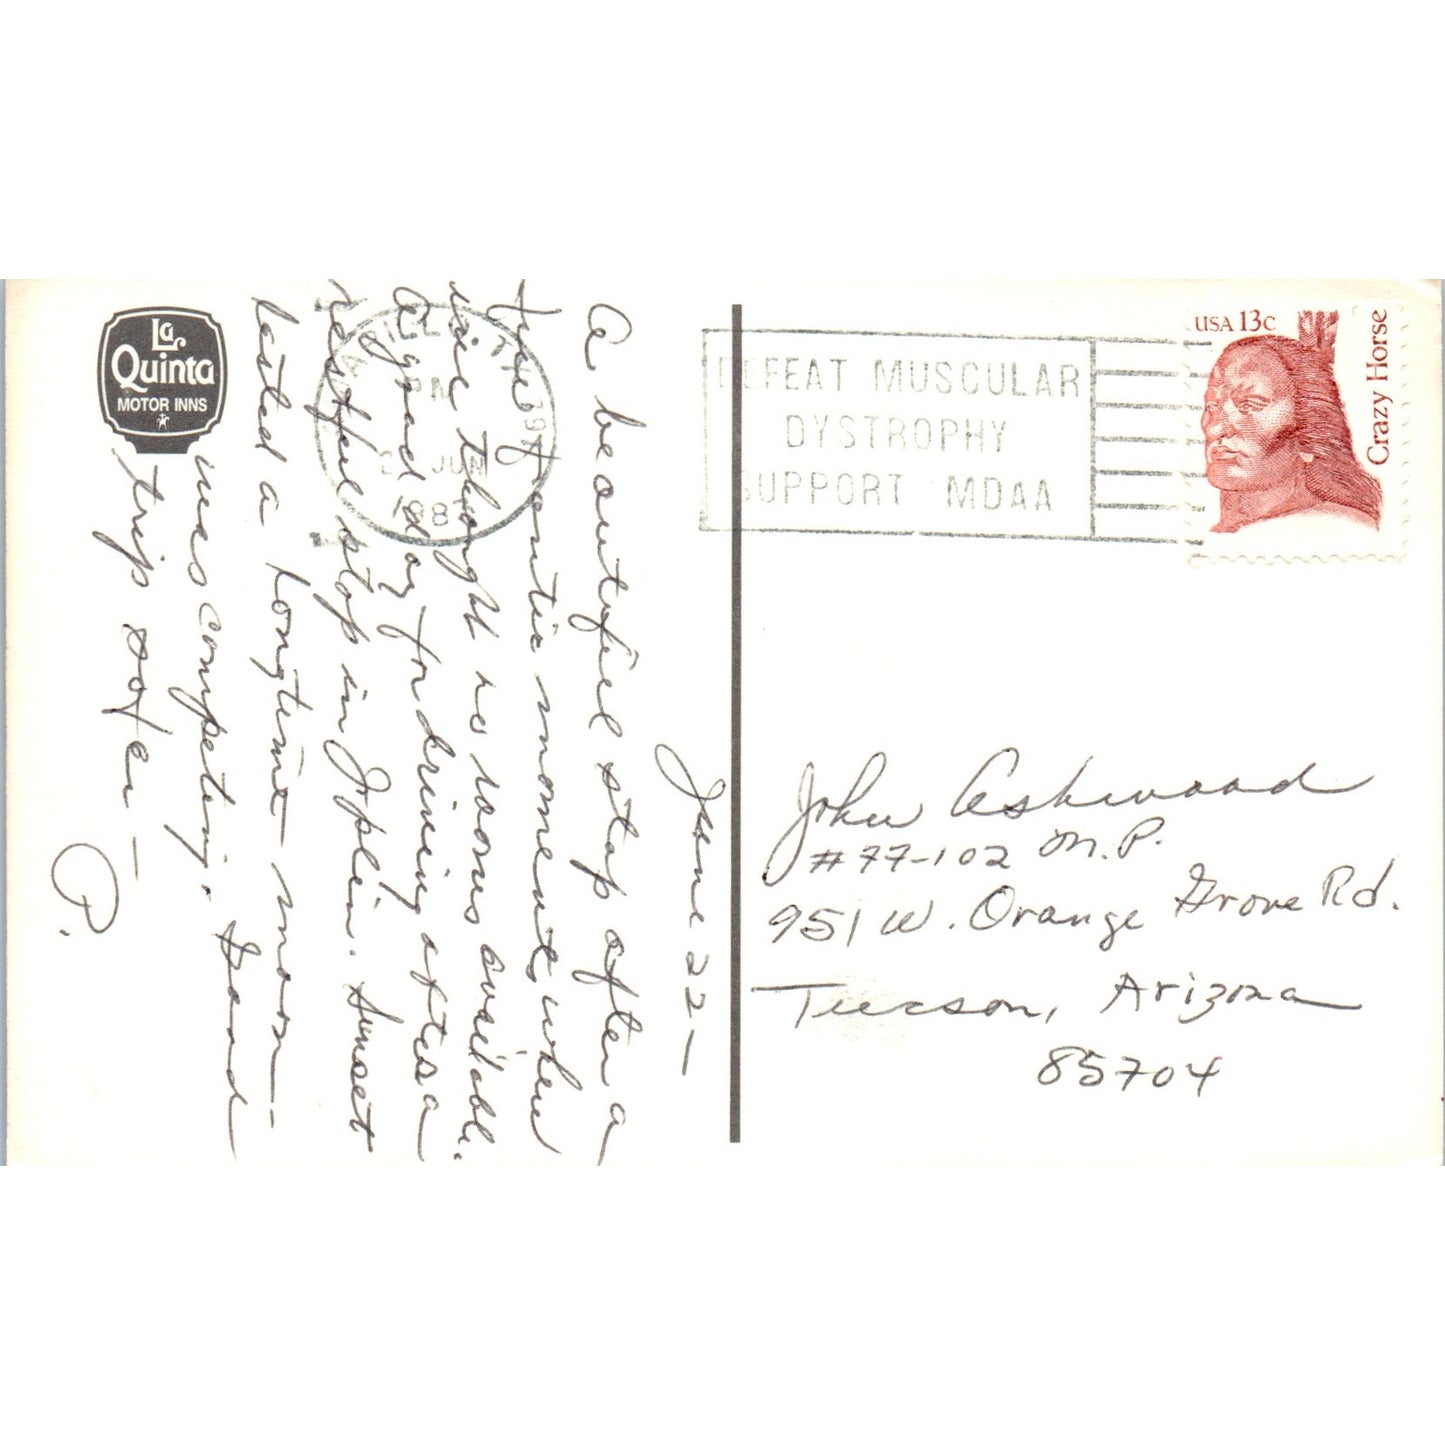 La
Quinta
MOTOR INNS
June 22—
A beautiful stop after a
frantic moment when
we thought no rooms available.
A good day for driving after a
restful stop in Joplin. Sunset
lasted a long time – moon
was competing. Good
trip so far —
P.
PM
JUN
1987
DEFEAT MUSCULAR
DYSTROPHY
SUPPORT MDAA
USA 13c
Crazy Horse
John Ashwood
#77-102 M.P.
951 W. Orange Grove Rd.
Tucson, Arizona
85704